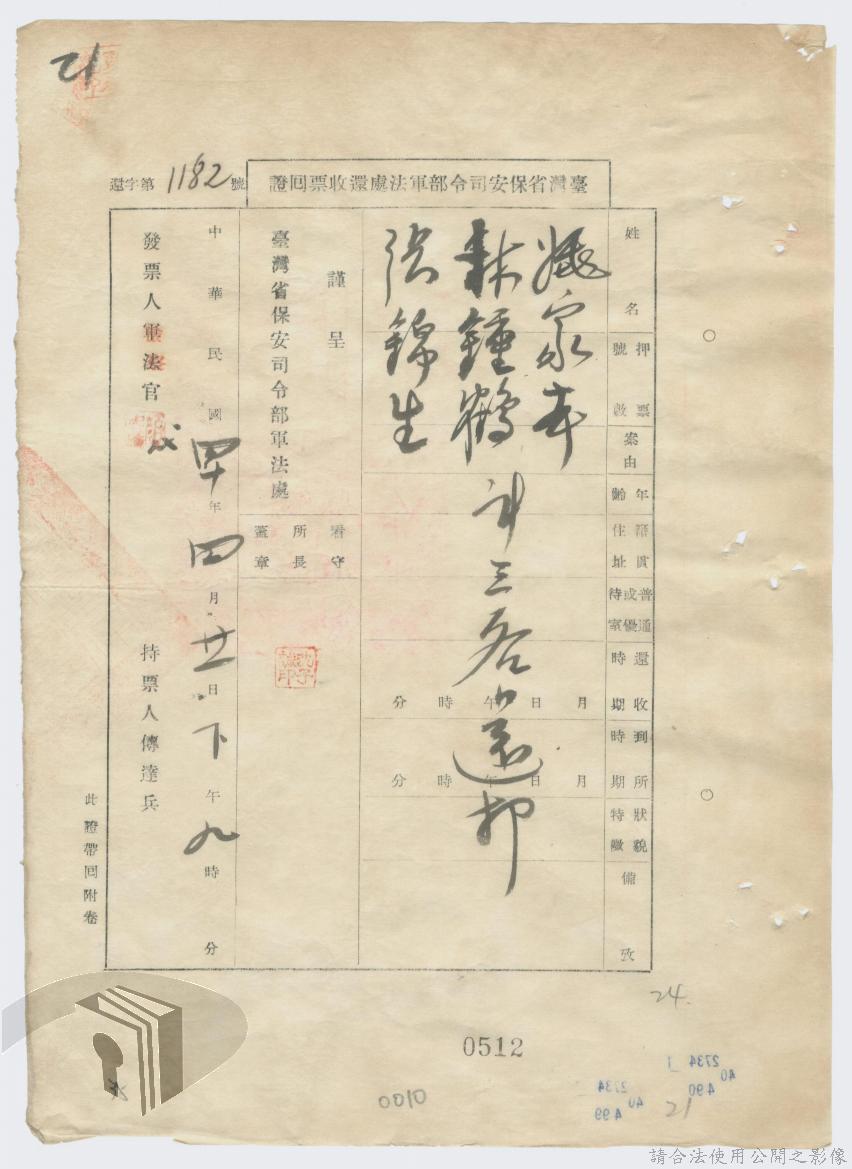 21
臺灣省保安司令部軍法處還收票回證
還字第1182號
姓名
押票號數
案由
年齡
籍貫住址
普通或優待室
還收時期
到所時期
狀貌特徵
備攷
姚家本
林鍾鶴
張錦生
等三名
還押
月日午時分
月日午時分
謹呈
臺灣省保安司令部軍法處
看守所長蓋章
中華民國四十年四月廿一日下午九時分
發票人軍法官
持票人傳達兵
此證帶回附卷
24.
0512
0010
2734
40 4 90
2734
40 4 99
21
請合法使用公開之影像